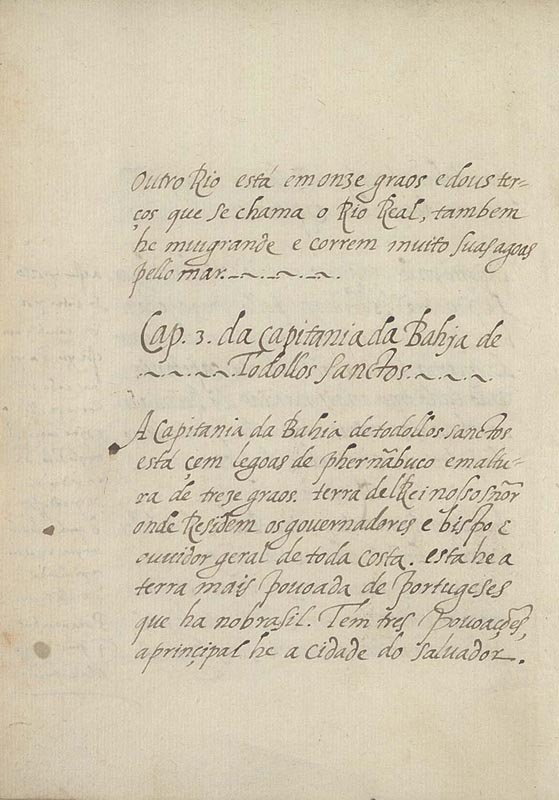 Outro Rio está em onze graos e dous ter-
ços que se chama o Rio Real, tambem
he muigrande e correm muito suas agoas
pello mar.
Cap. 3. da capitania da Bahja de
Todollos sanctos
A Capitania da Bahia de todollos sanctos
está çem legoas de phernãbuco em altu-
ra de treze graos. terra del Rei nosso sñor
onde Residem os governadores e bispo e
ouvidor geral de toda costa. esta he a
terra mais povoada de portugeses
que ha no brasil. Tem tres povoações,
a prinçipal he a cidade do salvador.